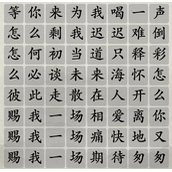 等你来为我喝一声
怎么剩我迟迟难倒
怎何初当道只释彩
么必谈未来海怀怎
彼此走散在人开么
赐我一场相爱离你
赐我一场痛快地又
赐我一场期待匆匆